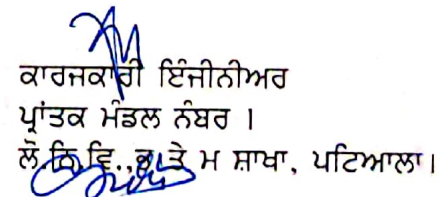 ਕਾਰਜਕਾਰੀ ਇੰਜੀਨੀਅਰ
ਪ੍ਰਾਂਤਕ ਮੰਡਲ ਨੰਬਰ ।
ਲੋ.ਨਿ.ਵਿ.,ਭ ਤੇ ਮ ਸ਼ਾਖਾ, ਪਟਿਆਲਾ।